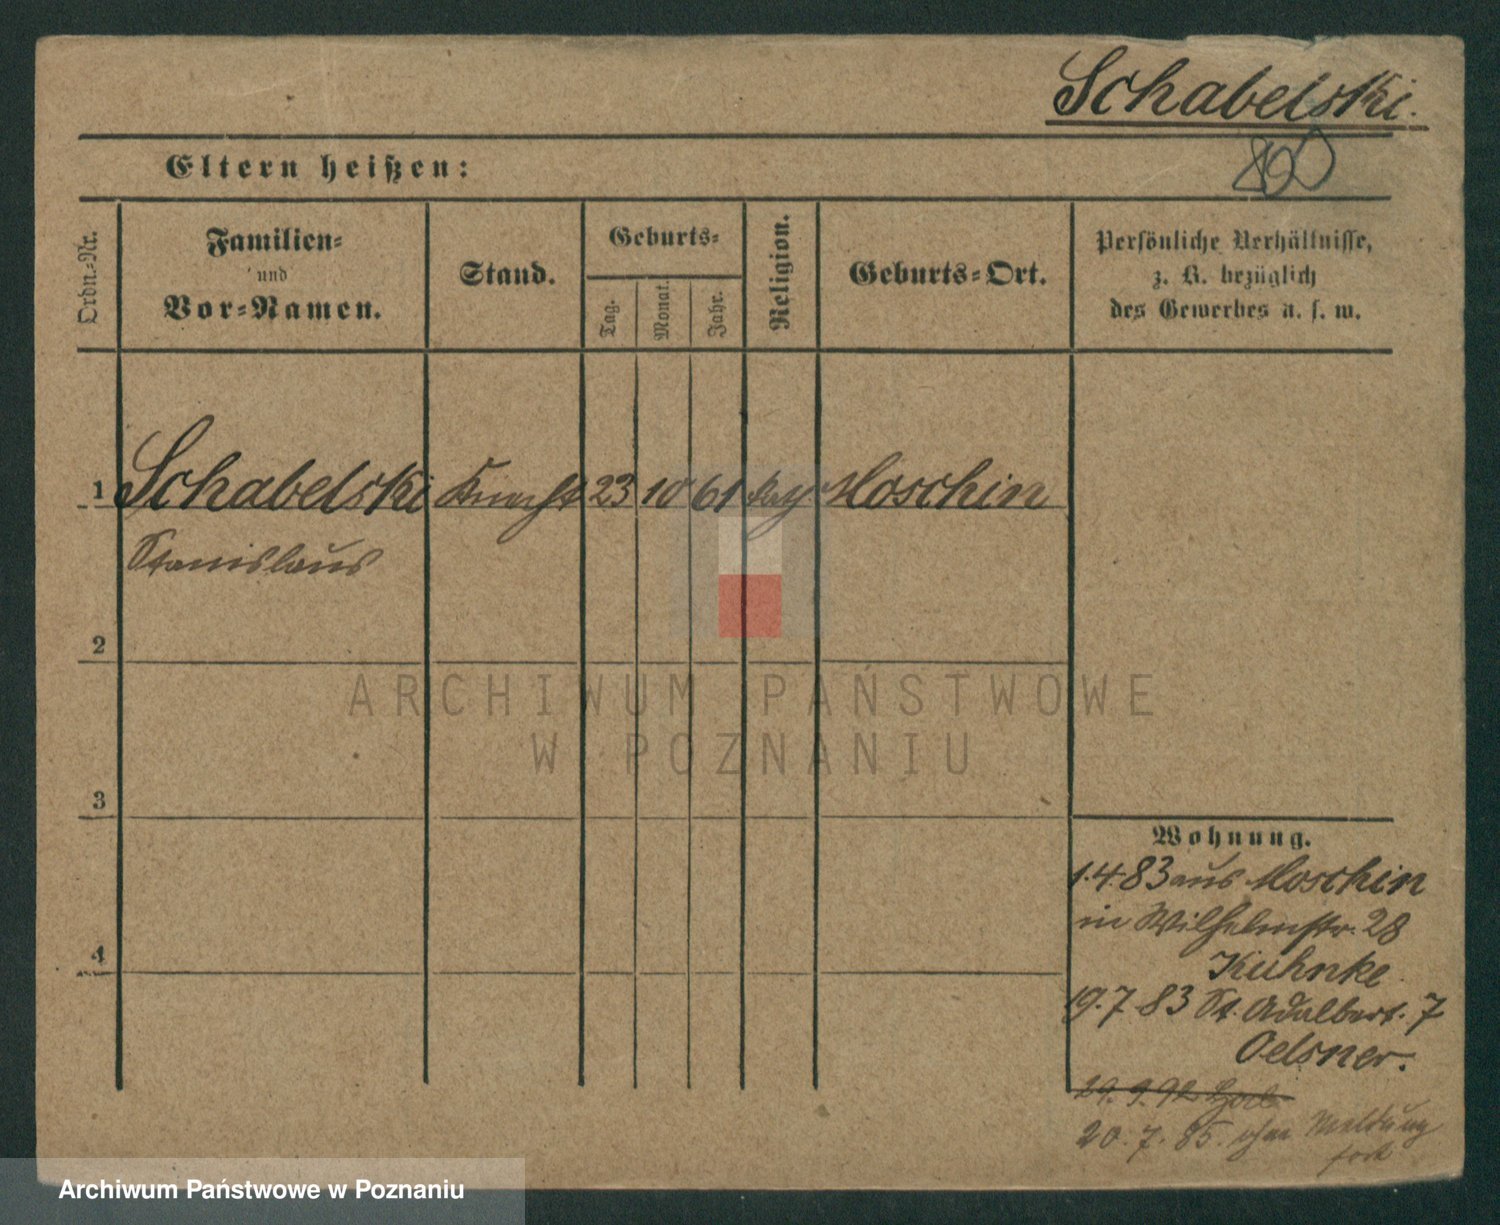 Schabelski.
Eltern heißen:
890
Ordn.-Nr.
Familien-
und
Vor-Namen.
Stand.
Geburts-
Tag.
Monat.
Jahr.
Religion.
Geburts-Ort.
Persönliche Verhältnisse,
z. B. bezüglich
des Gewerbes u. s. w.
1 Schabelski Knecht 23 10 61 kath Moschin
Stanislaus
2
3
4
Wohnung.
1.4.83 aus Moschin
in Wilhelmstr. 28
Kuhnke
19.7.83 St. Adalbert. 7
Oelsner.
29.9.92
20.7.85. ohne Meldung
fort
ARCHIWUM PAŃSTWOWE
W POZNANIU
Archiwum Państwowe w Poznaniu